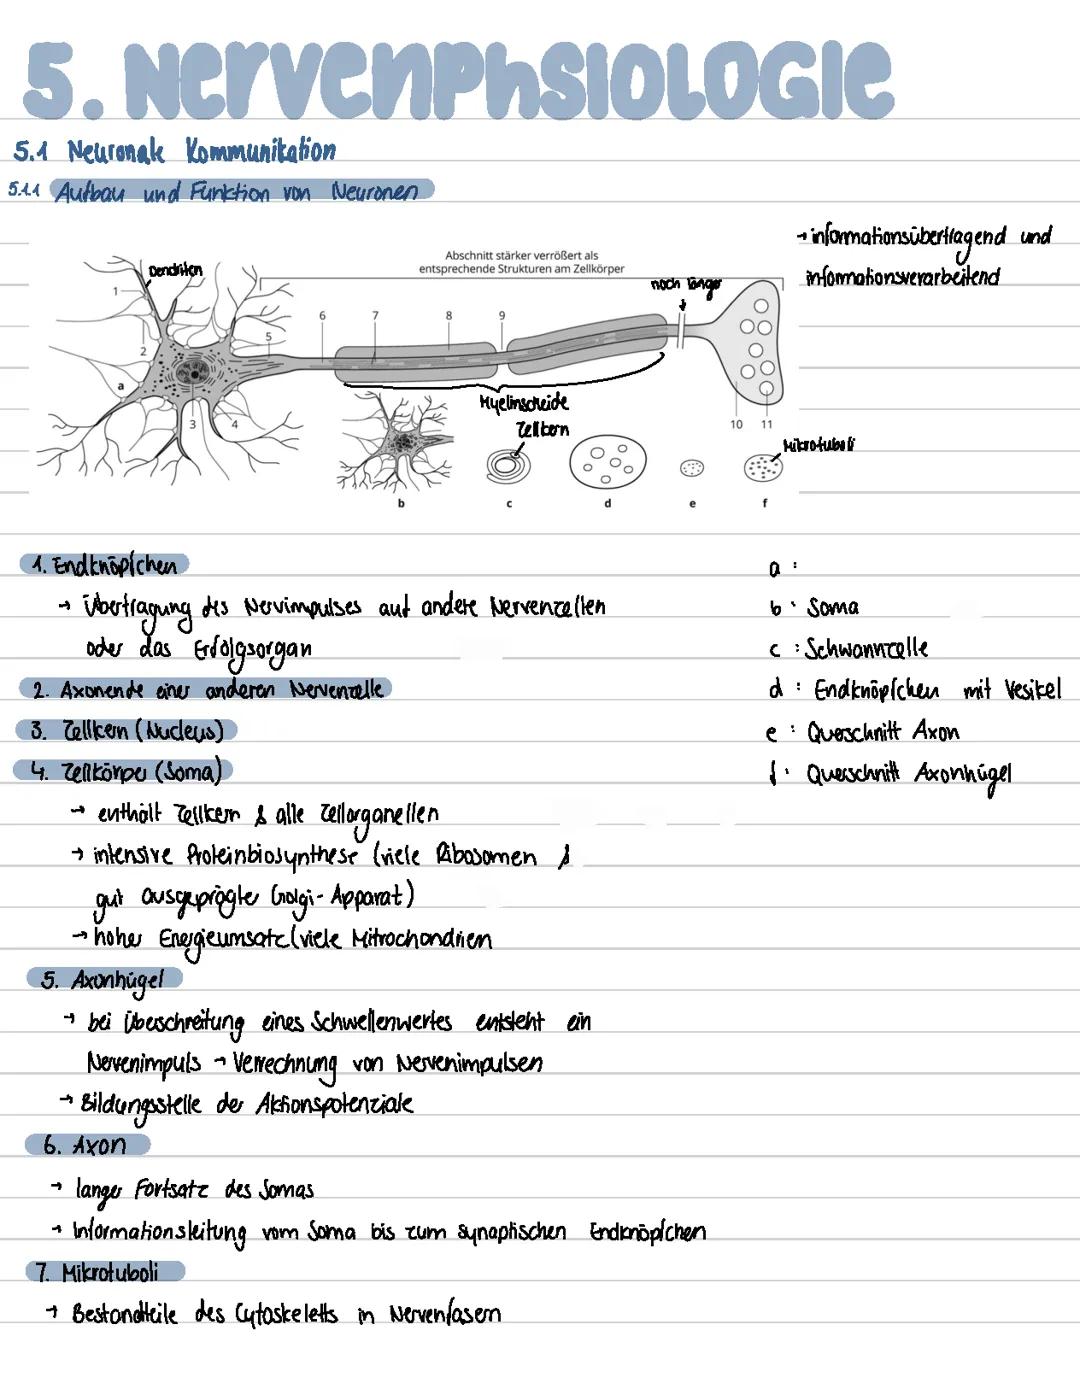 5. Nervenphsiologie
5.1 Neuronale Kommunikation
5.1.1 Aufbau und Funktion von Neuronen
→ informationsübertragend und
informationsverarbeitend
Abschnitt stärker verrößert als
entsprechende Strukturen am Zellkörper
Dendriten
noch länger
1
2
3
4
5
6
7
8
9
a
Myelinscheide
Zellkern
10
11
Mikrotuboli
b
c
d
e
f
1. Endknöpfchen
→ Übertragung des Nervimpulses auf andere Nervenzellen
oder das Erfolgsorgan
2. Axonende einer anderen Nervenzelle
3. Zellkern (Nucleus)
4. Zellkörper (Soma)
→ enthält Zellkern & alle Zellorganellen
→ intensive Proteinbiosynthese (viele Ribosomen &
gut ausgeprägter Golgi-Apparat)
→ hoher Energieumsatz (viele Mitrochondrien
5. Axonhügel
→ bei Überschreitung eines Schwellenwertes entsteht ein
Nervenimpuls → Verrechnung von Nervenimpulsen
→ Bildungsstelle der Aktionspotenziale
6. Axon
→ langer Fortsatz des Somas
→ Informationsleitung vom Soma bis zum synaptischen Endknöpfchen
7. Mikrotuboli
→ Bestandteile des Cytoskeletts in Nervenfasern
a :
b : Soma
c : Schwannzelle
d : Endknöpfchen mit Vesikel
e : Querschnitt Axon
f : Querschnitt Axonhügel